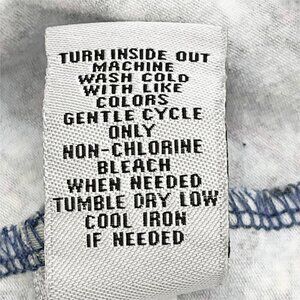 TURN INSIDE OUT
MACHINE
WASH COLD
WITH LIKE
COLORS
GENTLE CYCLE
ONLY
NON-CHLORINE
BLEACH
WHEN NEEDED
TUMBLE DRY LOW
COOL IRON
IF NEEDED